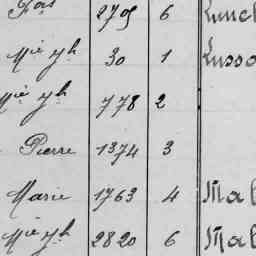 2705 6
Mie Jh 30 1 Lusso
Mie Jh 778 2
Pierre 1374 3
Marie 1763 4 Mal
Mie Jh 2820 6 Mal